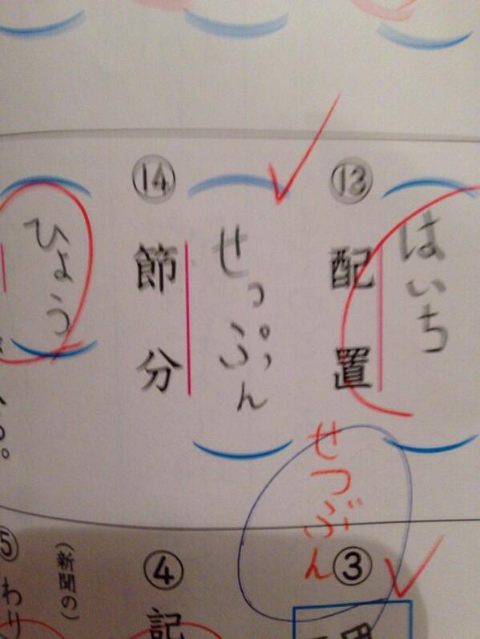 ⑬
配置
はいち
⑭
節分
せっぷん
ひょう
せつぶん
③
④
記
(新聞の)
⑤
わり